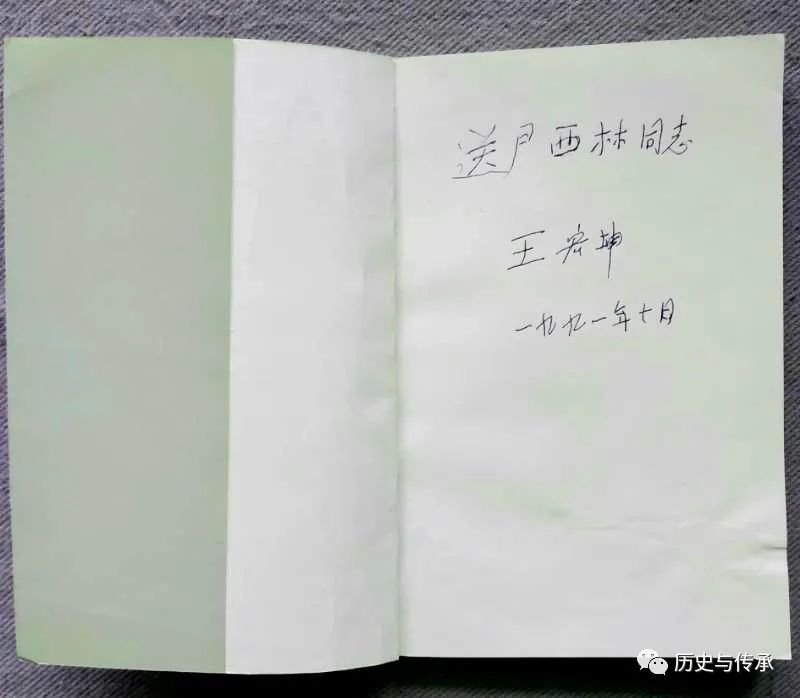 送尹西林同志
王宏坤
一九九一年十月
历史与传承